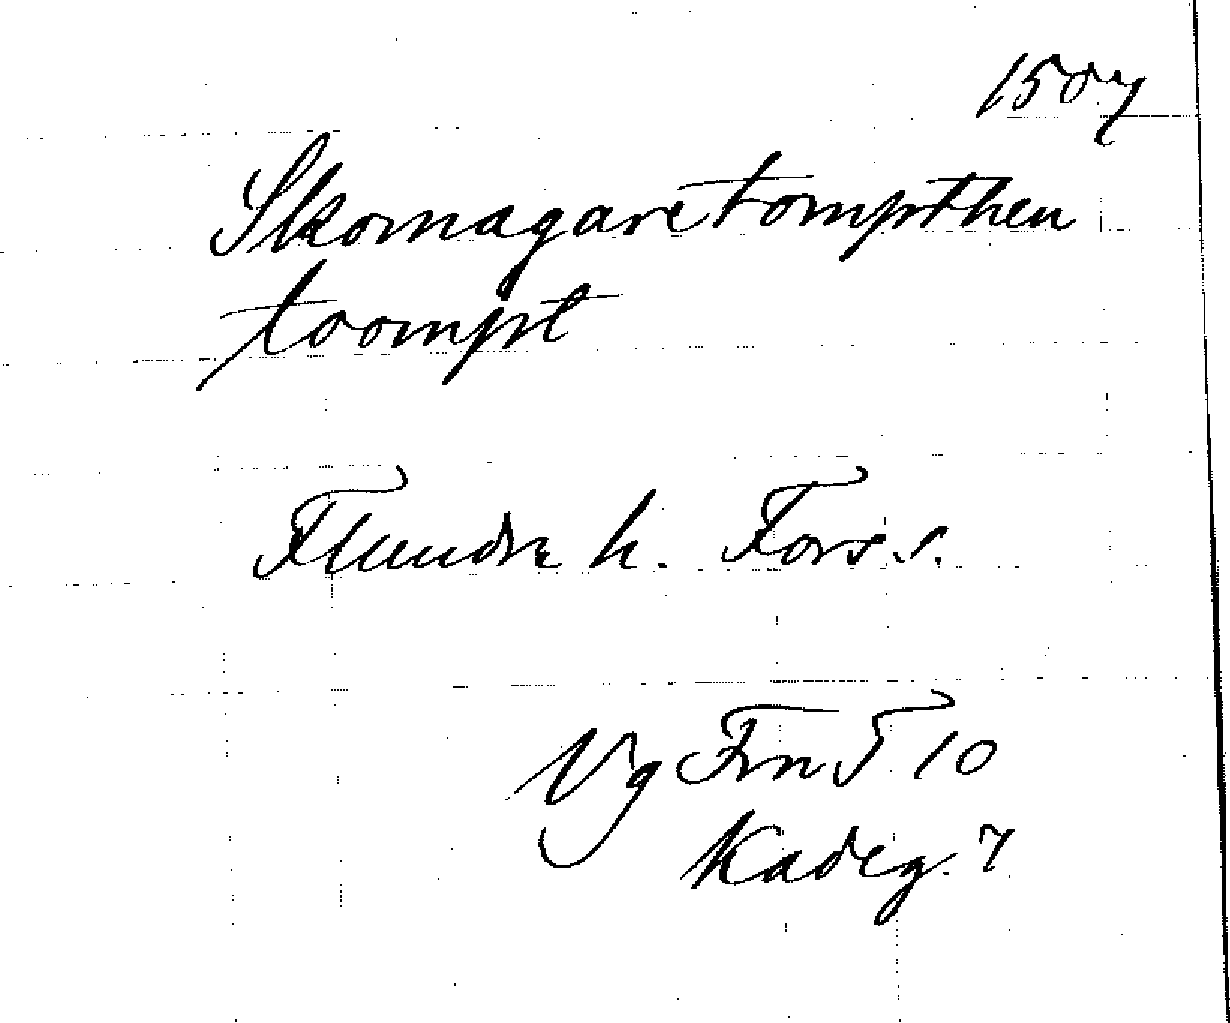 1507
Skomagaretompthen
toompt
Flundre h. Fors s.
Vg Frn 5 10
Kadeg. 7